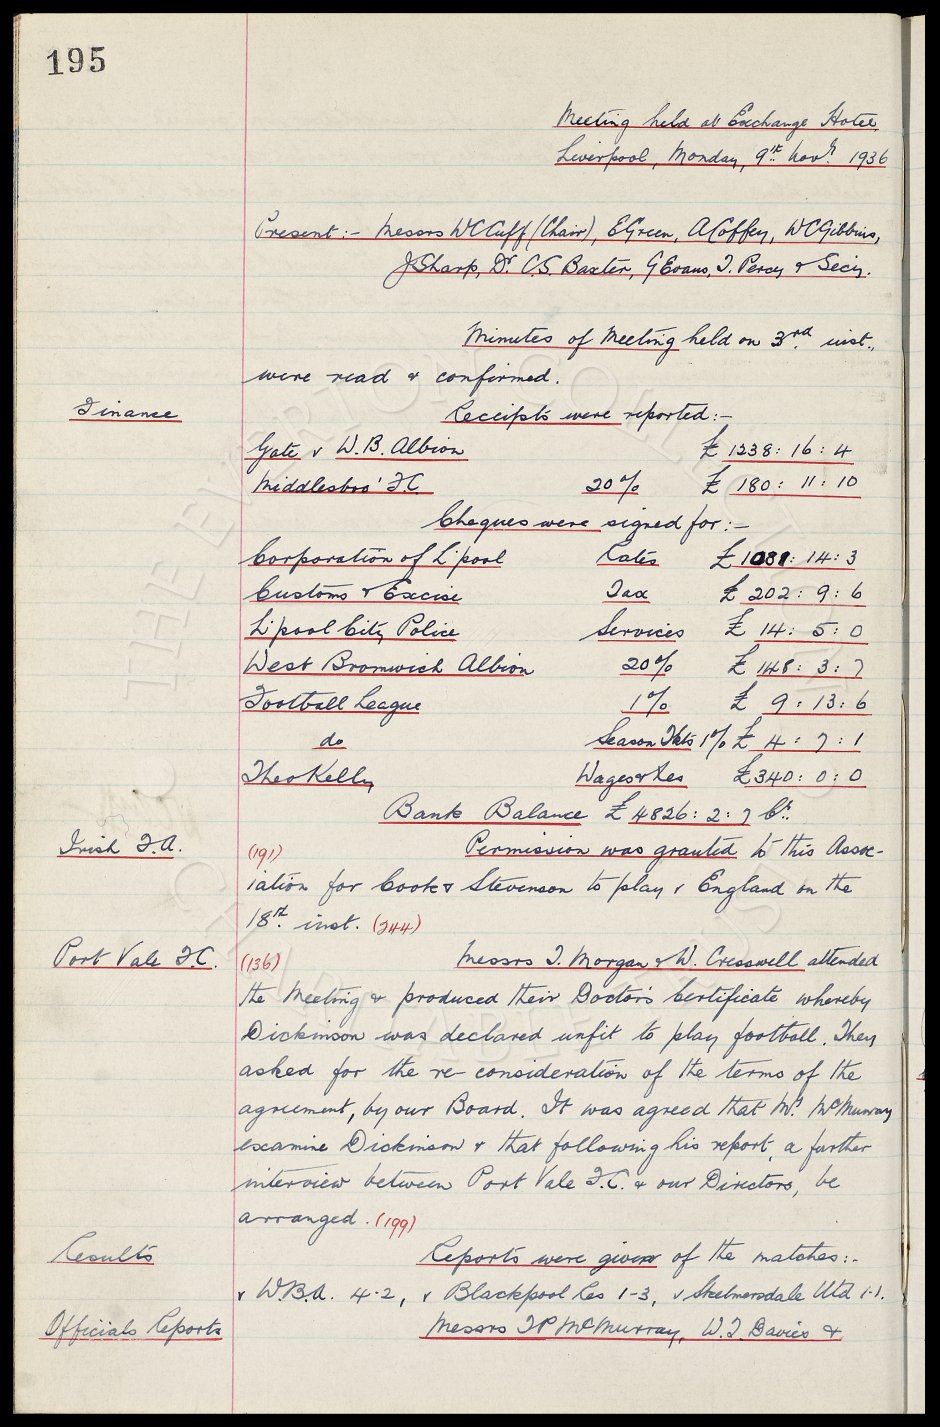 195
Meeting held at Exchange Hotel,
Liverpool, Monday, 9th Novr. 1936
Present:- Messrs WC Cuff (Chair), E Green, A Coffey, WC Gibbins,
J Sharp, Dr. C.S. Baxter, G Evans, T. Percy & Secy.
Minutes of Meeting held on 3rd. inst.,
were read & confirmed.
Finance
Receipts were reported:-
Gate v W.B. Albion £ 1238: 16: 4
Middlesbro' F.C. 20% £ 180: 11: 10
Cheques were signed for:-
Corporation of L'pool Rates £1081: 14: 3
Customs & Excise Tax £ 202: 9: 6
L'pool City Police Services £ 14: 5: 0
West Bromwich Albion 20% £ 148: 3: 7
Football League 1% £ 9: 13: 6
do Season Tkts 1% £ 4: 7: 1
Theo Kelly Wages & Xes £340: 0: 0
Bank Balance £ 4826: 2: 7 Cr.
Irish F.A. (191) Permission was granted to this Assoc-
iation for Cook & Stevenson to play v England on the
18th. inst. (244)
Port Vale F.C. (136) Messrs T. Morgan & W. Cresswell attended
the Meeting & produced their Doctor's Certificate whereby
Dickinson was declared unfit to play football. They
asked for the re-consideration of the terms of the
agreement, by our Board. It was agreed that Mr. McMurray
examine Dickinson & that following his report, a further
interview between Port Vale F.C. & our Directors, be
arranged. (199)
Results Reports were given of the matches:-
v W.B.A. 4-2, v Blackpool Res 1-3, v Skelmersdale Utd 1-1.
Officials Reports Messrs JP McMurray, W.J. Davies &
THE EVERTON COLLECTION
CHARITABLE TRUST